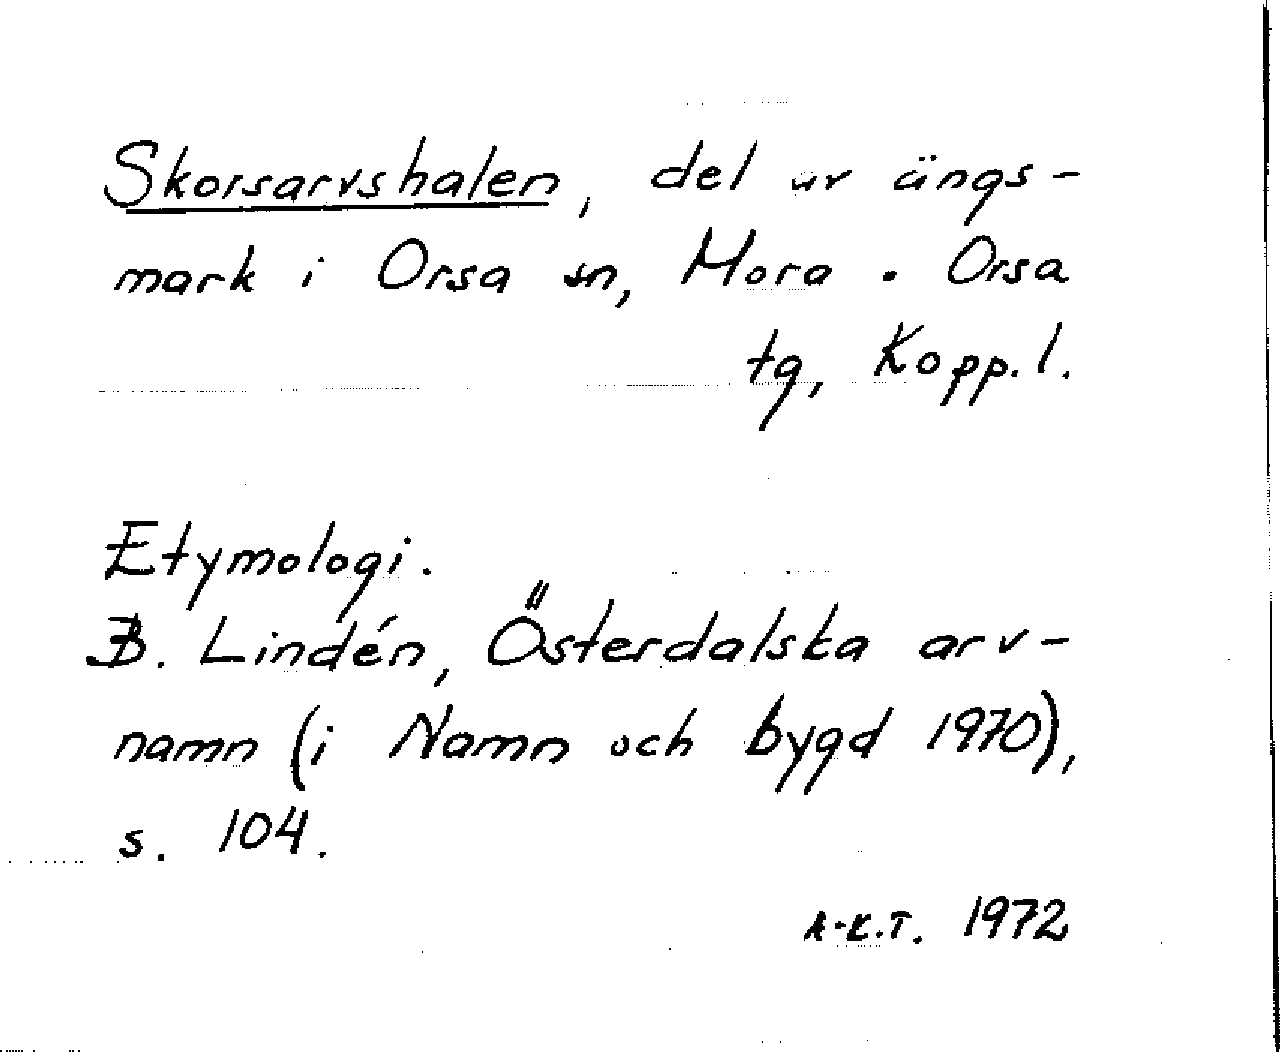 Skorsarvshalen, del av ängs-
mark i Orsa sn, Mora o. Orsa
tg, Kopp. l.
Etymologi.
B. Lindén, Österdalska arv-
namn (i Namn och bygd 1970),
s. 104.
A-K.T. 1972